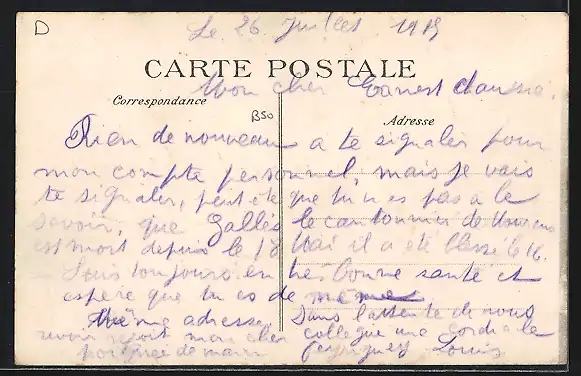 D
Le 26 Juillet 191
CARTE POSTALE
Mon cher Ernest
Correspondance
B50
Adresse
Rien de nouveau a te signaler pour
mon compte personnel, mais je vais
te signaler, peut etre que tu n es pas a le
savoir, que Gallès le cantonnier de
est mort depuis le 18 Mai il a été blessé le 16.
Suis toujours en tres bonne santé et
espere que tu es de même
Même adresse Dans l'attente de nous
revoir reçoit mon cher collègue une cordiale
poignée de main Louis